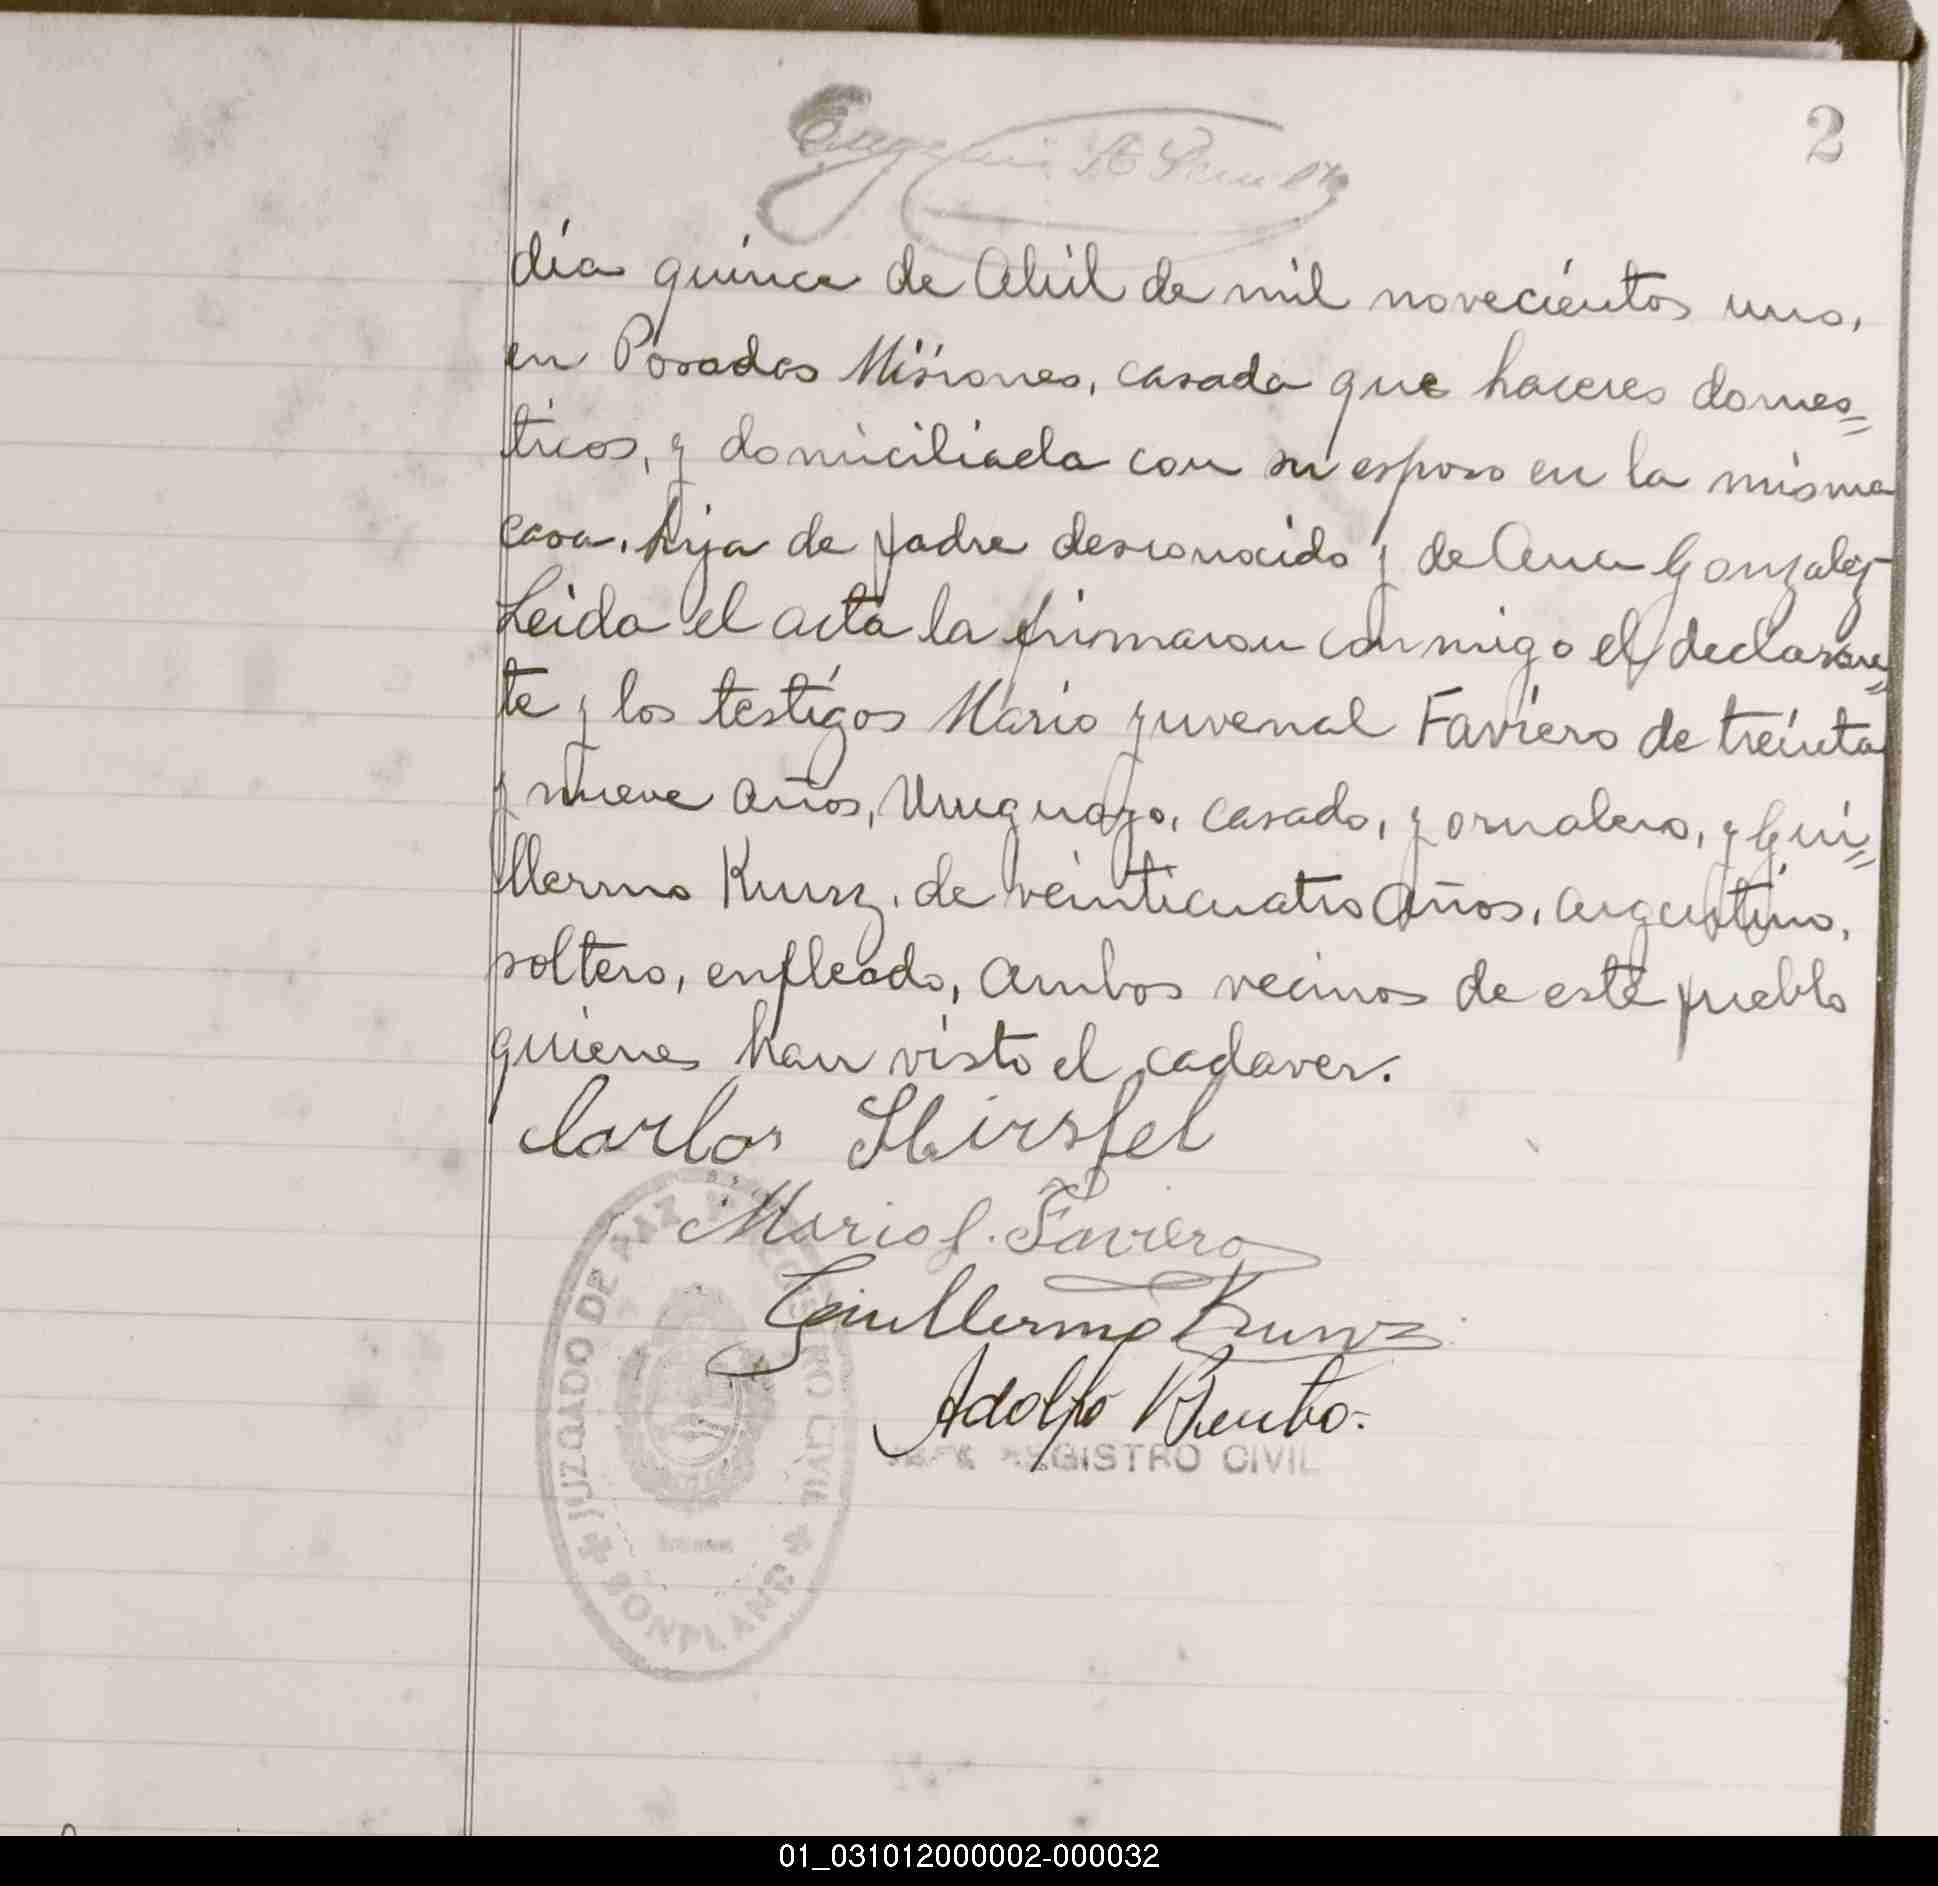 2
día quince de Abril de mil novecientos uno,
en Posadas Misiones, casada que haceres domes=
ticos, y domiciliada con su esposo en la misma
casa, hija de padre desconocido y de Ana Gonzalez
Leida el acta la firmaron conmigo el declaran=
te y los testigos Mario yuvenal Faviero de treinta
y nueve años, Uruguayo, casado, yornalero, y Gui=
llermo Kunz, de veinticuatro años, argentino,
soltero, enpleado, ambos vecinos de este pueblo
quienes han visto el cadaver.
Carlos Hirsfel
Mario J. Faviero
Guillermo Kunz
Adolfo
JEFE REGISTRO CIVIL
JUZGADO DE PAZ Y REGISTRO CIVIL
BONPLAND
01_031012000002-000032